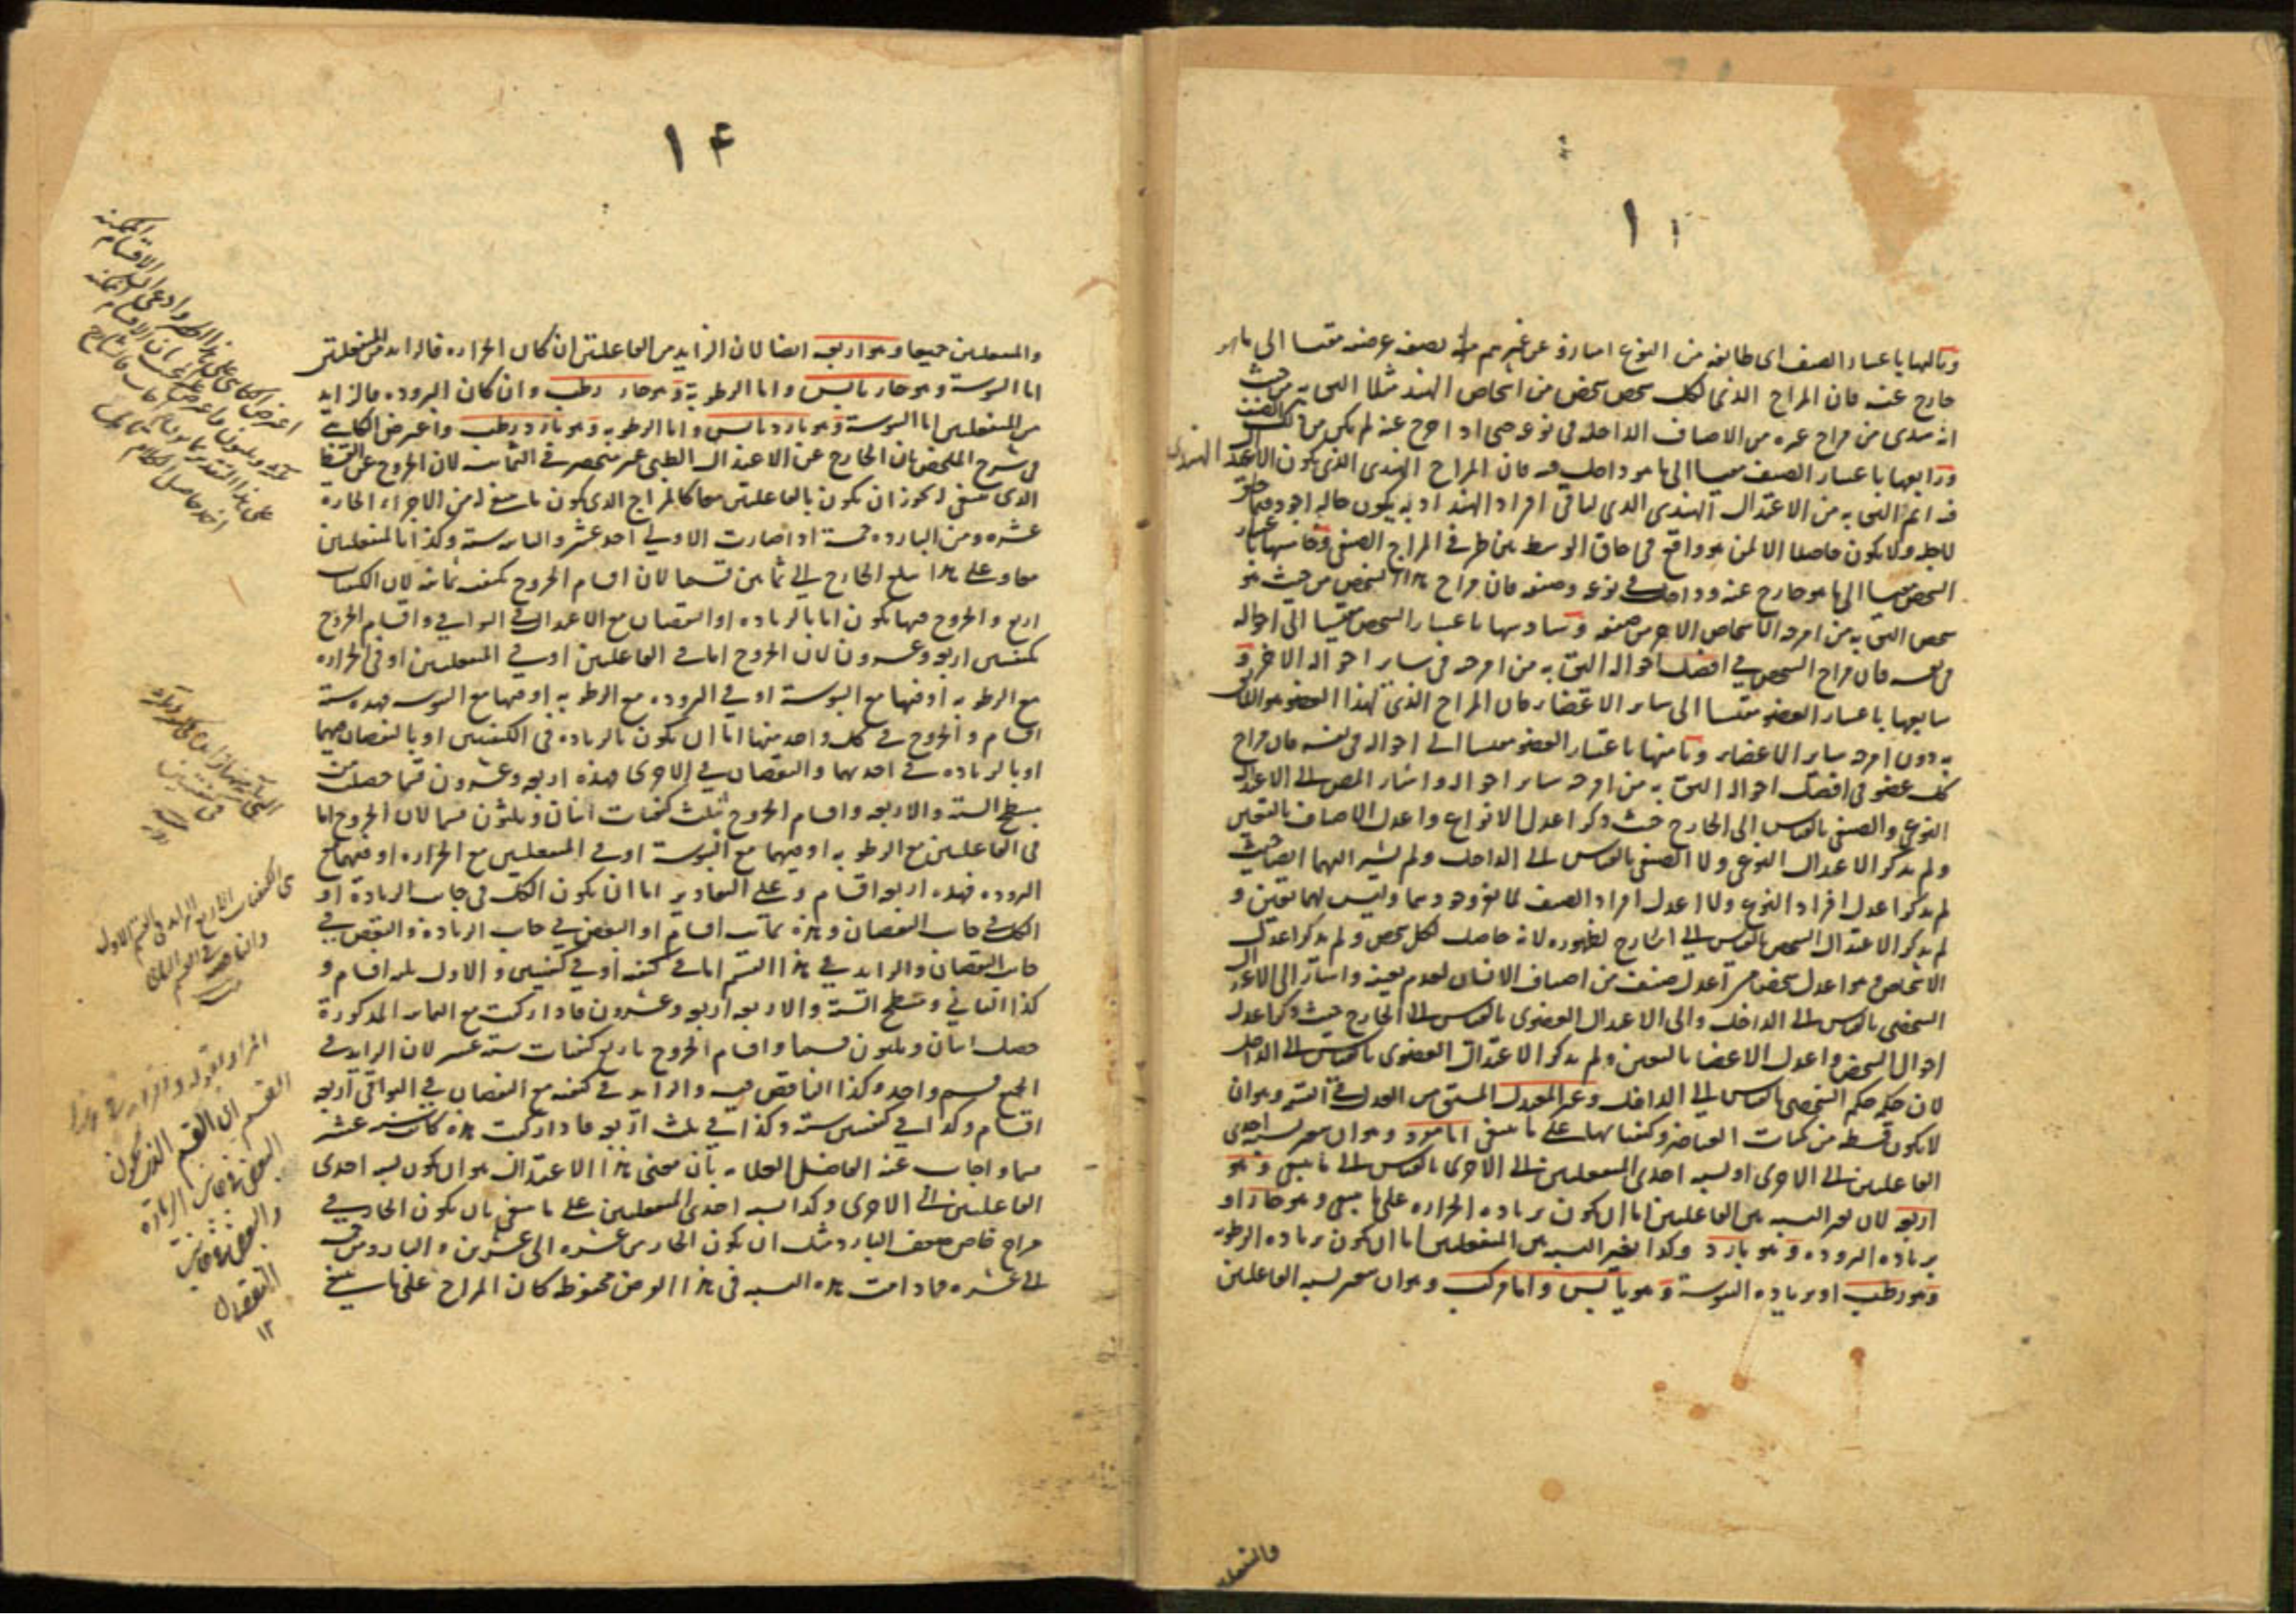 ١١
وثالثها باعتبار الصنف اى طائفة من النوع امتازوا عن غيرهم بصفة عرضية مقيسا الى ما هو
خارج عنه فان المزاج الذى لكل شخص شخص من اشخاص الهند مثلا اليق به من حيث
انه هندى من مزاج غيره من الاصناف الداخلة فى نوعه حتى اذا خرج عنه لم يكن من ذلك الصنف
ورابعها باعتبار الصنف مقيسا الى ما هو داخل فيه فان المزاج الهندى الذى يكون الاعتدال الهندى
فيه اتم اليق به من الاعتدال الهندى الذى لباقى افراد الهند اذ به يكون حاله اجود فيما خلق
لاجله ولا يكون حاصلا الا لمن هو واقع فى حاق الوسط بين طرفى المزاج الصنفى وخامسها باعتبار
الشخص مقيسا الى ما هو خارج عنه وداخل فى نوعه وصنفه فان مزاج هذا الشخص من حيث هو
شخص اليق به من امزجة الاشخاص الاخر من صنفه وسادسها باعتبار الشخص مقيسا الى احواله
فى نفسه فان مزاج الشخص فى افضل احواله اليق به من امزجته فى سائر احواله الاخر و
سابعها باعتبار العضو مقيسا الى سائر الاعضاء فان المزاج الذى لهذا العضو هو اللائق
به دون امزجة سائر الاعضاء وثامنها باعتبار العضو مقيسا الى احواله فى نفسه فان مزاج
كل عضو فى افضل احواله اليق به من امزجة سائر احواله واشار المص الى الاعتدال
النوعى والصنفى بالقياس الى الخارج حيث ذكر اعدل الانواع واعدل الاصناف بالتعيين
ولم يذكر الاعتدال النوعى ولا الصنفى بالقياس الى الداخل ولم يشر اليهما ايضا حيث
لم يذكر اعدل افراد النوع ولا اعدل افراد الصنف وليس لهما تعين و
لم يذكر الاعتدال الشخصى بالقياس الى الخارج لظهوره لانه حاصل لكل شخص ولم يذكر اعدل
الاشخاص وهو اعدل شخص من اعدل صنف من اصناف الانسان لعدم تعينه واشار الى الاعتدال
الشخصى بالقياس الى الداخل والى الاعتدال العضوى بالقياس الى الخارج حيث ذكر اعدل
احوال الشخص واعدل الاعضاء بالتعيين ولم يذكر الاعتدال العضوى بالقياس الى الداخل
لان حكمه حكم الشخصى بالقياس الى الداخل وغير المعتدل المشتق من العدل فى القسمة وهو ان
لا يكون قسطه من كميات العناصر وكيفياتها على ما ينبغى اما مفرد وهو ان يتغير نسبة احدى
الفاعلتين الى الاخرى او نسبة احدى المنفعلتين الى الاخرى بالقياس الى ما ينبغى وهو
اربعة لان تغير النسبة بين الفاعلتين اما ان يكون بزيادة الحرارة على ما ينبغى وهو حار او
بزيادة البرودة وهو بارد وكذا تغير النسبة بين المنفعلتين اما ان يكون بزيادة الرطوبة
وهو رطب او بزيادة اليبوسة وهو يابس واما مركب وهو ان يتغير نسبة الفاعلتين
والمنفعلتين
١۴
والمنفعلتين جميعا وهو اربعة ايضا لان الزايد من الفاعلتين ان كان الحرارة فالزايد من المنفعلتين
اما اليبوسة وهو حار يابس واما الرطوبة وهو حار رطب وان كان البرودة فالزايد
من المنفعلتين اما اليبوسة وهو بارد يابس واما الرطوبة وهو بارد رطب واعترض الكاتبى
فى شرح الملخص بان الخارج عن الاعتدال الطبى غير منحصر فى الثمانية لان الخروج عن القسط
الذى ينبغى له يجوز ان يكون بالفاعلتين معا كالمزاج الذى يكون ما ينبغى له من الاجزاء الحارة
عشرة ومن الباردة خمسة اذا صارت الاولى احد عشر والثانية ستة وكذا بالمنفعلتين
معا وعلى هذا يبلغ الخارج الى ثمانين قسما لان اقسام الخروج بكيفية ثمانية لان الكيفيات
اربع والخروج فيها يكون اما بالزيادة او النقصان مع الاعتدال فى البواقى واقسام الخروج
بكيفيتين اربعة وعشرون لان الخروج اما فى الفاعلتين او فى المنفعلتين او فى الحرارة
مع الرطوبة او فيها مع اليبوسة او فى البرودة مع الرطوبة او فيها مع اليبوسة فهذه ستة
اقسام والخروج فى كل واحد منها اما ان يكون بالزيادة فى الكيفيتين او بالنقصان فيهما
او بالزيادة فى احدهما والنقصان فى الاخرى فهذه اربعة وعشرون قسما حصلت من
بسط الستة والاربعة واقسام الخروج بثلث كيفيات اثنان وثلثون قسما لان الخروج اما
فى الفاعلتين مع الرطوبة او فيهما مع اليبوسة او فى المنفعلتين مع الحرارة او فيهما مع
البرودة فهذه اربعة اقسام وعلى التقادير اما ان يكون الكل فى جانب الزيادة او
الكل فى جانب النقصان وهذه ثمانية اقسام او البعض فى جانب الزيادة والبعض فى
جانب النقصان والزايد فى هذا القسم اما فى كيفية او فى كيفيتين والاول ثلثة اقسام و
كذا الثانى ومسطح الستة والاربعة اربعة وعشرون فاذا ركبت مع الثمانية المذكورة
حصل اثنان وثلثون قسما واقسام الخروج باربع كيفيات ستة عشر لان الزايد فى
الجميع قسم واحد وكذا الناقص فيه والزايد فى كيفية مع النقصان فى البواقى اربعة
اقسام وكذا فى كيفيتين ستة وكذا فى ثلث اربعة فاذا ركبت هذه كانت ستة عشر
قسما واجاب عنه الفاضل العلامة بان معنى هذا الاعتدال هو ان يكون نسبة احدى
الفاعلتين الى الاخرى وكذا نسبة احدى المنفعلتين على ما ينبغى بان يكون الحار فى
مزاج خاص ضعف البارد مثل ان يكون الحار من عشرة الى عشرين والبارد من خمسة
الى عشرة فما دامت هذه النسبة فى هذا العرض محفوظة كان المزاج على ما ينبغى
المراد بقوله والزايد فى هذا
القسم اى القسم الذى يكون
البعض فى جانب الزيادة
والبعض فى جانب
النقصان
١٢